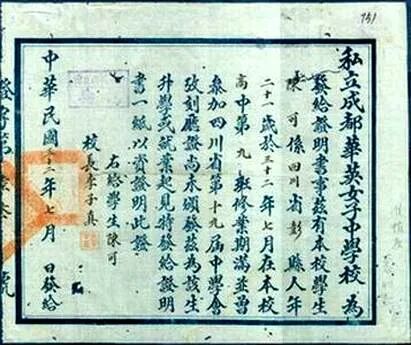 私立成都華英女子中學校 為
發給證明書事茲有本校學生
陳可係四川省彭縣人年
二十一歲於三十二年七月在本校
高中第九班修業期滿並曾
參加四川省第十九屆中學會
攷刻應證尚未頒發茲為該生
升學或就業起見特發給證明
書一紙以資證明此證
右給學生陳可
校長李子真
中華民國三十二年七月 日發給